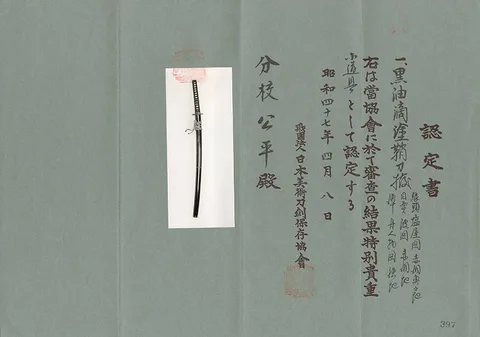 認定書
一、黒油滴塗鞘刀拵
右は當協會に於て審査の結果特別貴重
小道具として認定する
昭和四十七年四月八日
財團法人日本美術刀劍保存協會
分校公平殿
397